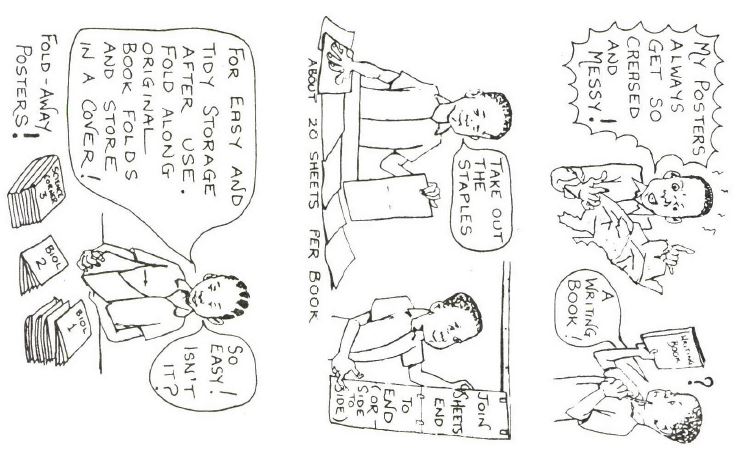 MY POSTERS
ALWAYS
GET SO
CREASED
AND
MESSY!
WRITING
BOOK
?
A
WRITING
BOOK!
TAKE OUT
THE
STAPLES
ABOUT 20 SHEETS PER BOOK
JOIN
SHEETS
END
TO
END
(OR
SIDE
TO
SIDE)
FOR EASY AND
TIDY STORAGE
AFTER USE.
FOLD ALONG
ORIGINAL
BOOK FOLDS
AND STORE
IN A COVER!
SO
EASY!
ISN'T
IT?
FOLD-AWAY
POSTERS!
SCIENCE
CORNER
3
BIOL
2
BIOL
1